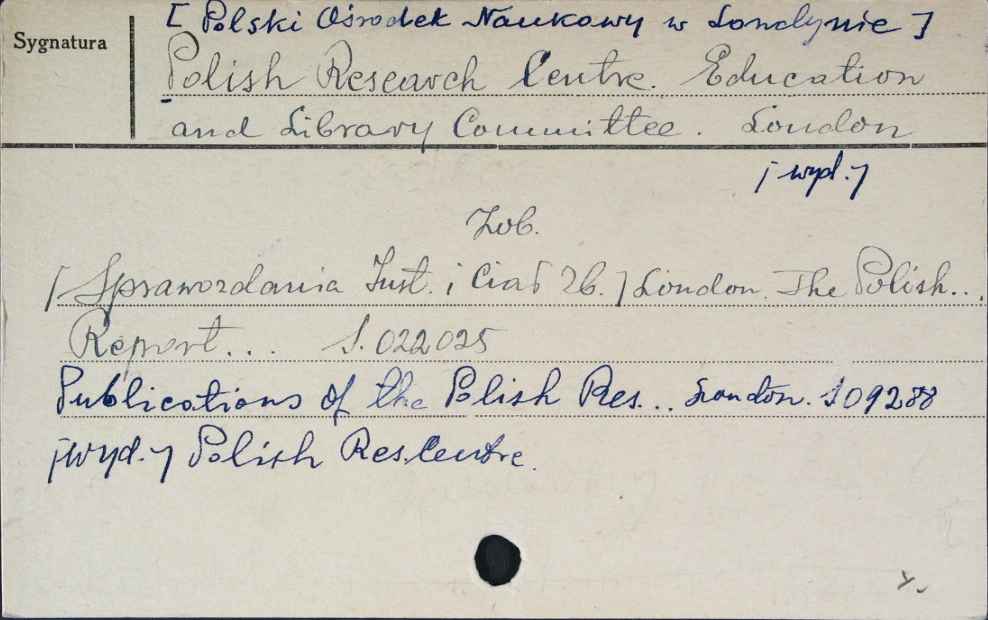 [ Polski Ośrodek Naukowy w Londynie ]
Sygnatura
Polish Research Centre. Education
and Library Committee. London
[wyd.]
Zob.
[Sprawozdania Inst. i Ciał zb.] London. The Polish...
Report... S. 022025
Publications of the Polish Res... London. S 09288
[wyd.] Polish Res. Centre.